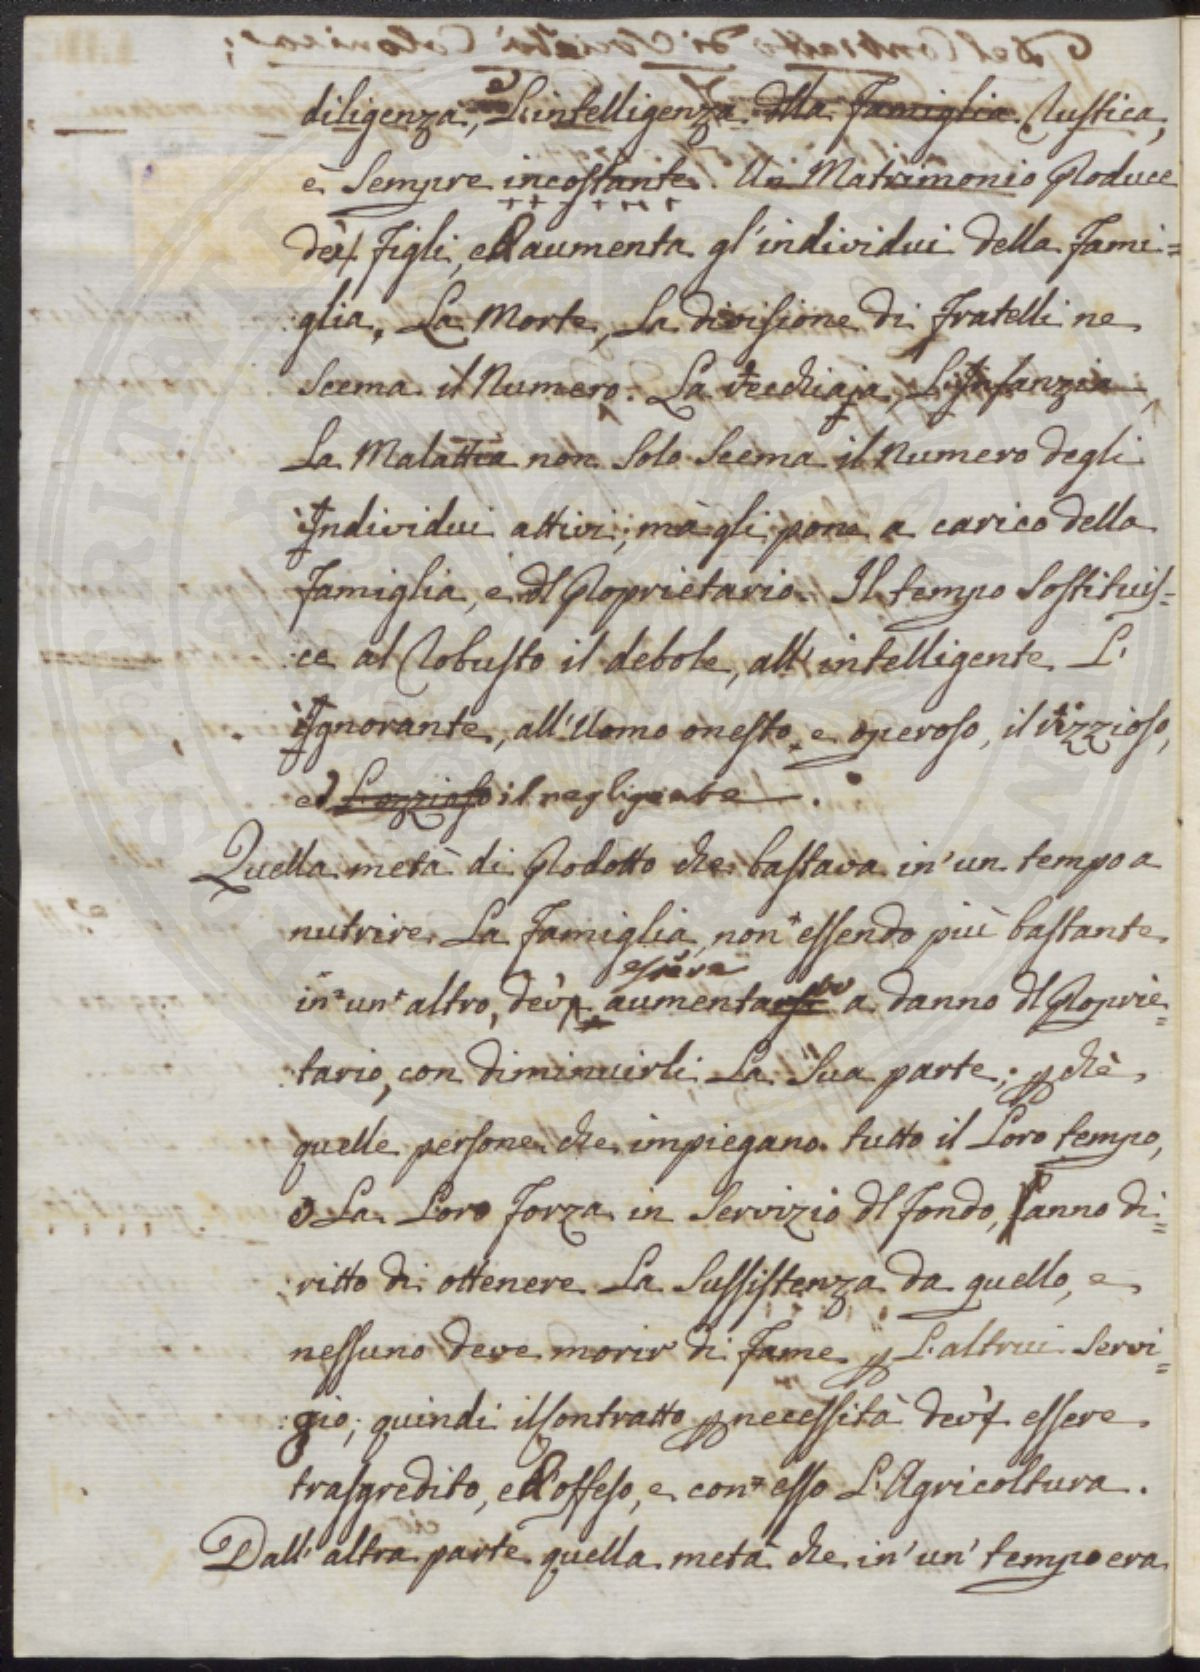 diligenza, e L'intelligenza dlla famiglia Rustica,
è Sempre incostante. Un Matrimonio Produce
dei figli, ed aumenta gl'individui della Fami=
glia, La Morte, La divisione di fratelli ne
Scema il Numero. La Vecchiaja, L'Infanzia,
La Malattia non Solo Scema il Numero degli
Individui attivi, mà gli pone a carico della
famiglia, e dl Proprietario. Il tempo Sostituis=
ce al Robusto il debole, all'intelligente L'
Ignorante, all'Uomo onesto, e operoso, il vizzioso,
ed il negligente.
Quella metà di Prodotto che bastava in'un tempo a
nutrire La famiglia, non essendo più bastante
in un altro, dev' essere aumentato a danno dl Proprie=
tario, con diminuirli La Sua parte; pchè
quelle persone che impiegano tutto il Loro tempo,
e La Loro Forza in Servizio dl fondo, hanno di=
ritto di ottenere La Sussistenza da quello, e
nessuno deve morir di fame p L'altrui Servi=
gio; quindi il Contratto p necessità dev' essere
trasgredito, ed offeso, e con esso L'Agricoltura.
Dall'altra parte quella metà che in'un' tempo era